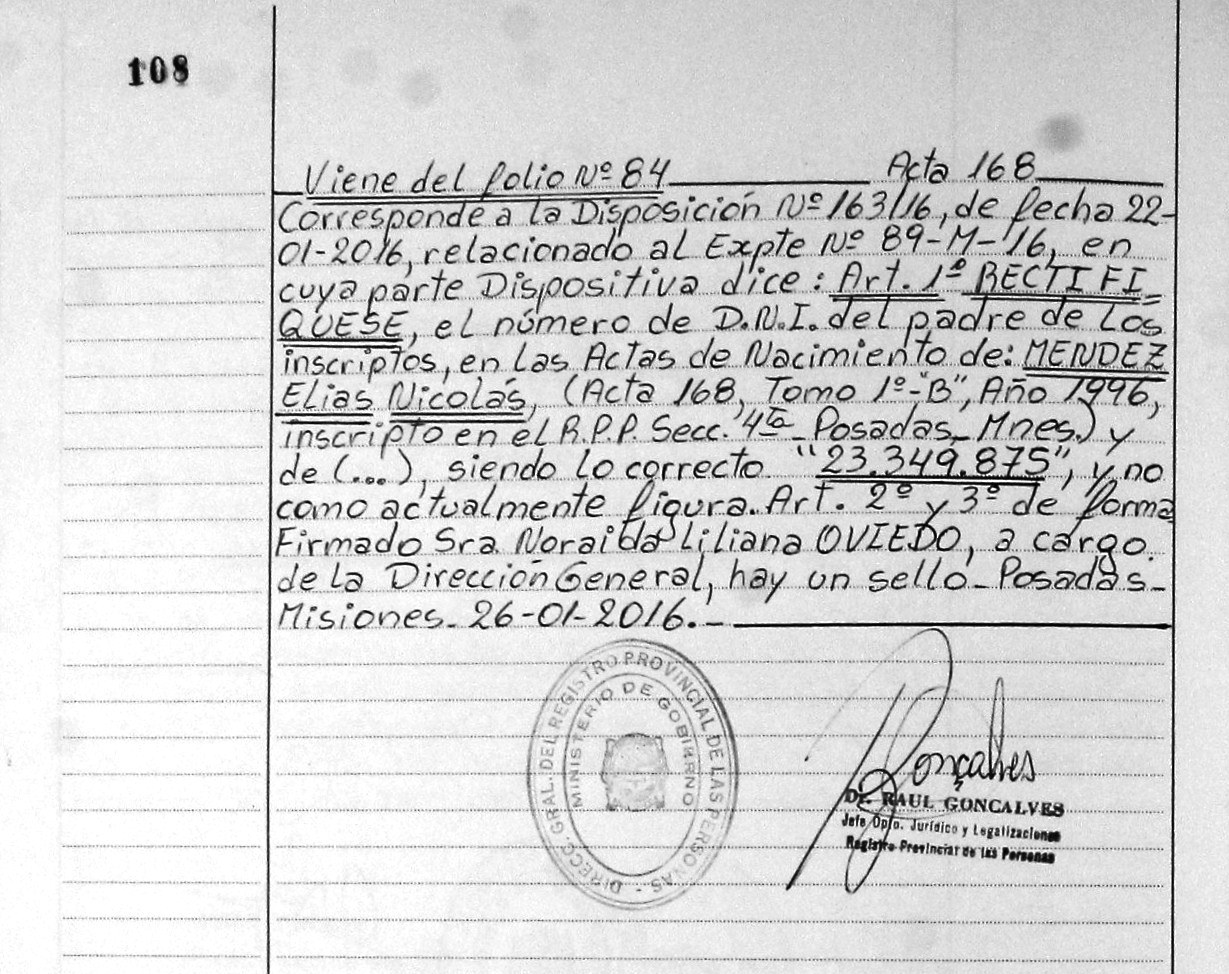 108
Viene del folio Nº 84 Acta 168
Corresponde a la Disposición Nº 163/16, de fecha 22-
01-2016, relacionado al Expte Nº 89-M-'16, en
cuya parte Dispositiva dice: Art. 1º RECTIFI_
QUESE, el número de D.N.I. del padre de los
inscriptos, en las Actas de Nacimiento de: MENDEZ
Elias Nicolás, (Acta 168, Tomo 1º-"B", Año 1996,
inscripto en el R.P.P. Secc. 4ta_ Posadas_ Mnes.) y
de (...), siendo lo correcto "23.349.875", y no
como actualmente figura. Art. 2º y 3º de forma
Firmado Sra. Noraida Liliana OVIEDO, a cargo.
de la Dirección General, hay un sello_ Posadas_
Misiones_ 26-01-2016._
DIRECC. GRAL. DEL REGISTRO PROVINCIAL DE LAS PERSONAS -
MINISTERIO DE GOBIERNO
Gonçalves
Dr. RAUL GONCALVES
Jefe Dpto. Jurídico y Legalizaciones
Registro Provincial de las Personas